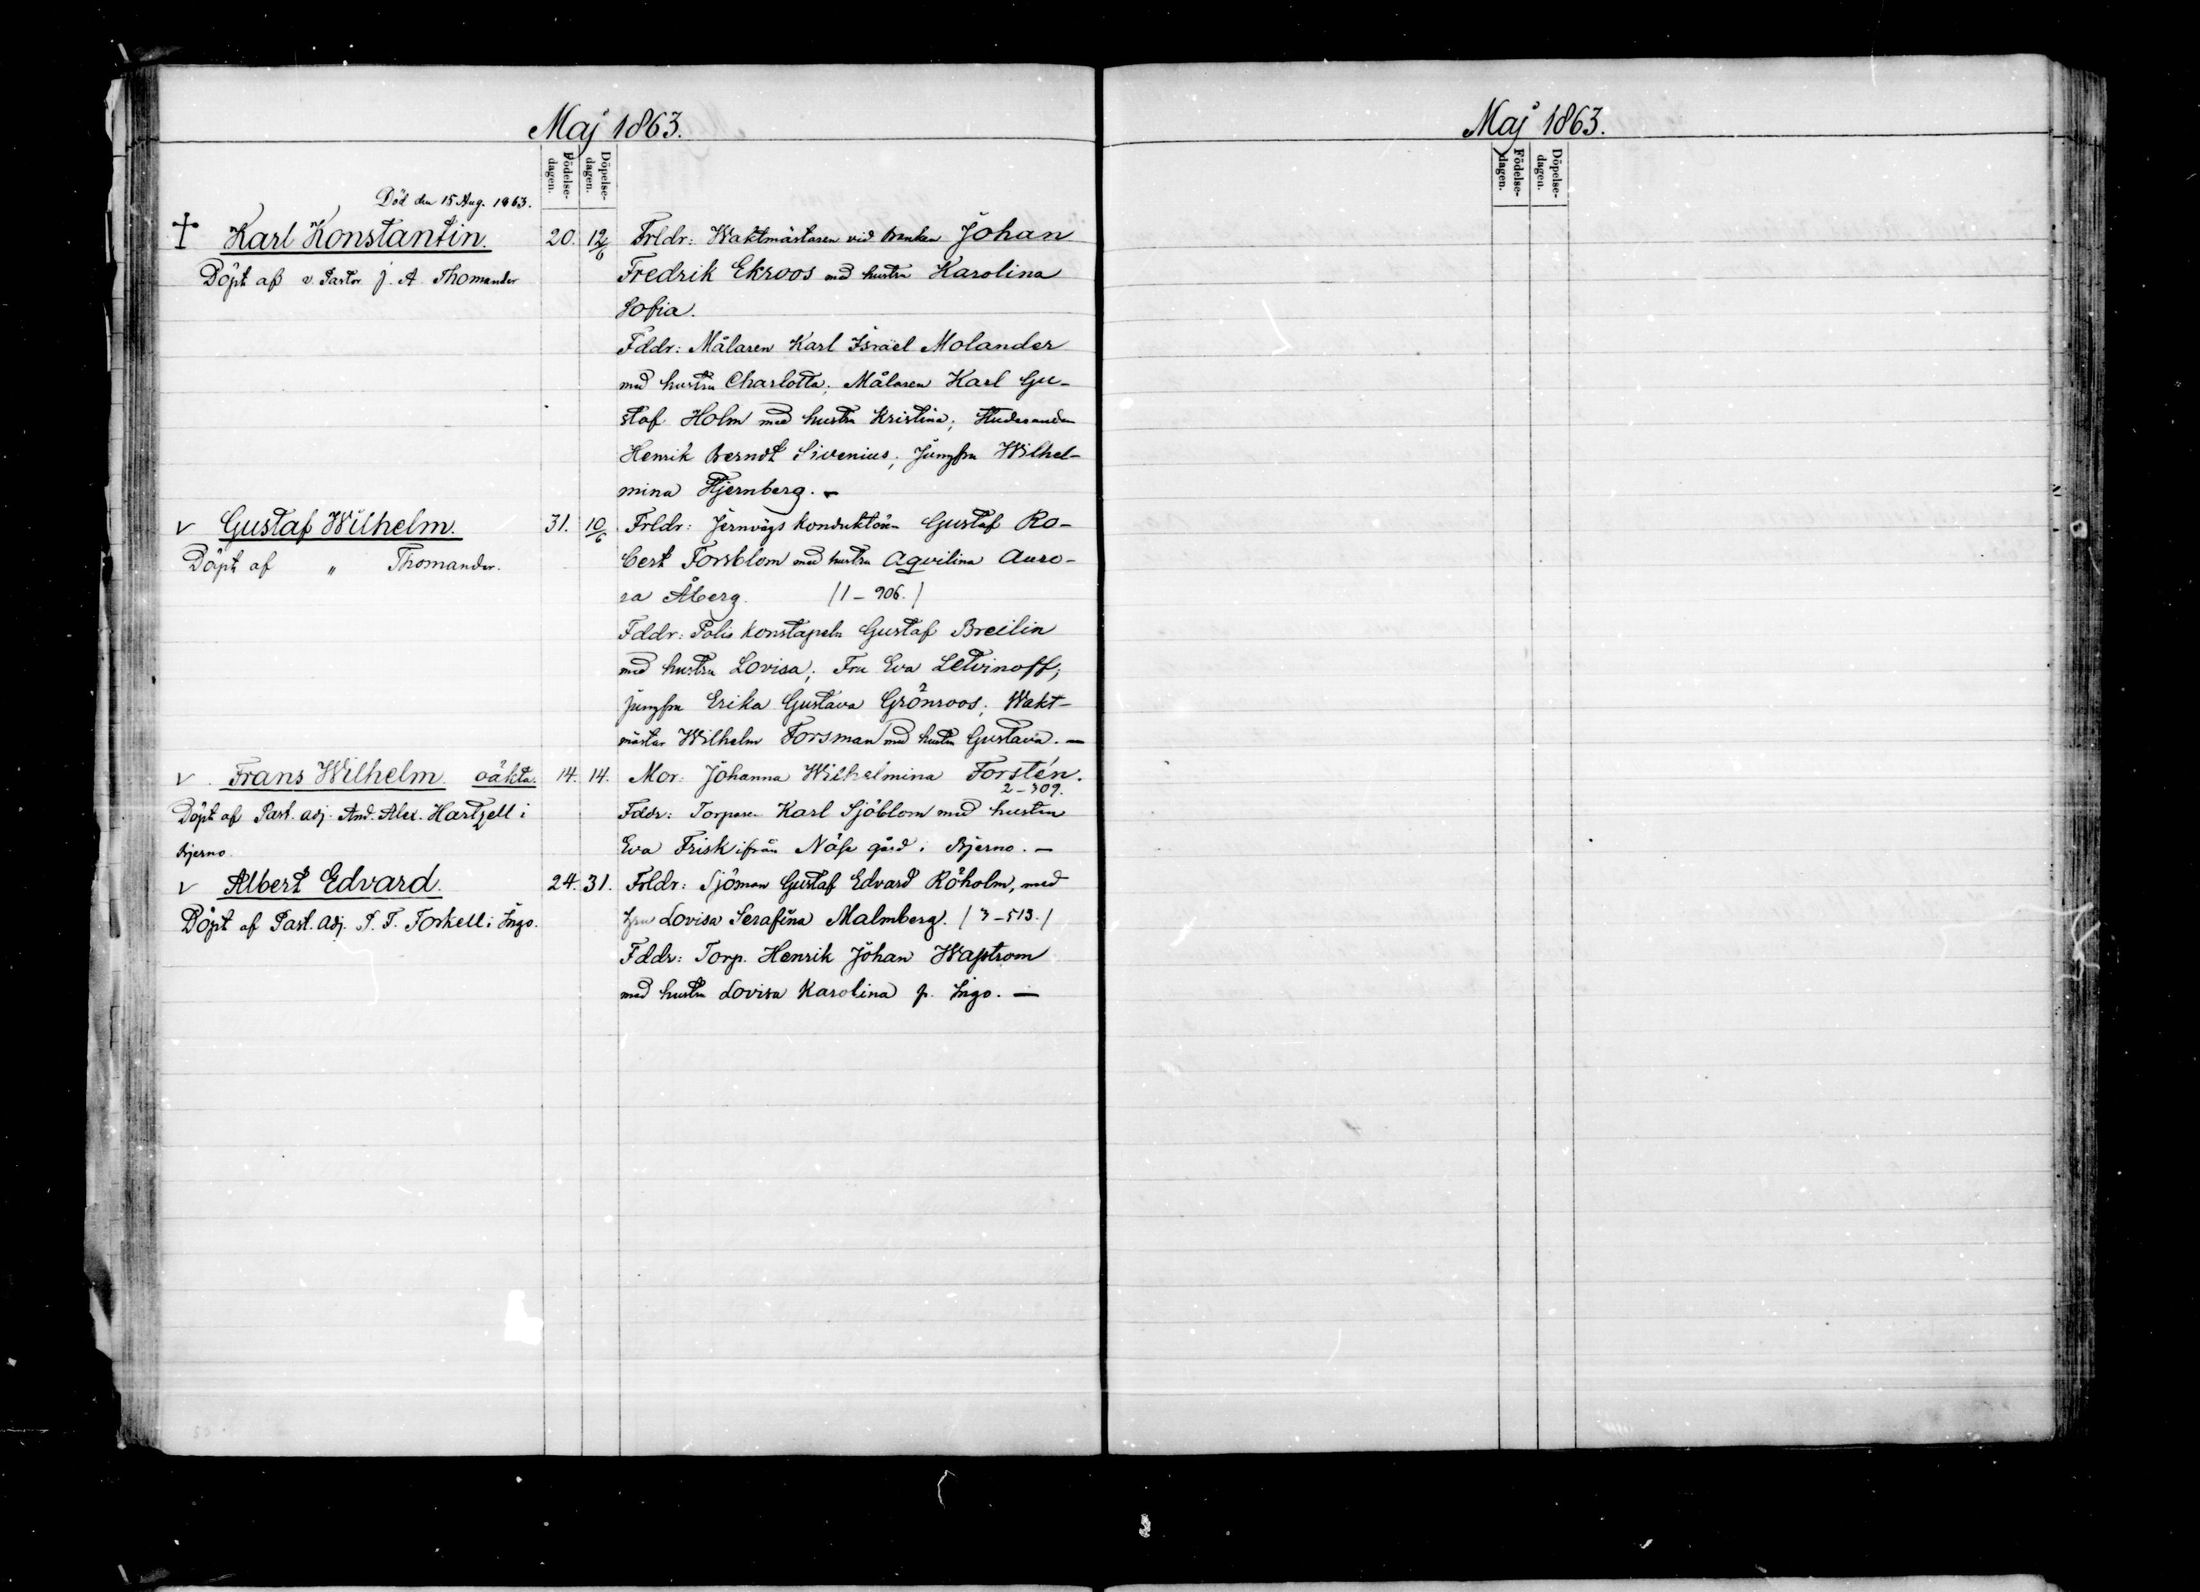 Maj 1863.
Födelse-
dagen.
Döpelse-
dagen.
Död den 15 Aug. 1863.
† Karl Konstantin. 20. 12/6
Döpt af v. Pastor J. A. Thomander
Frldr: Waktmästaren vid Banken Johan
Fredrik Ekroos med hustru Karolina
Sofia.
Fddr: Målaren Karl Israel Molander
med hustru Charlotta; Målaren Karl Gu-
staf Holm med hustru Kristina; Studeranden
Henrik Berndt Sivenius; Jungfru Wilhel-
mina Hjernberg. —
v Gustaf Wilhelm. 31. 10/6
Döpt af " Thomander.
Frldr: Jernvägs konduktören Gustaf Ro-
bert Forsblom med hustru Aqvilina Auro-
ra Åberg. /1-906./
Fddr: Polis konstapeln Gustaf Breilin
med hustru Lovisa; Fru Eva Letvinoff;
jungfru Erika Gustava Grönroos; Wakt-
mästar Wilhelm Forsman med hustru Gustava. —
v. Frans Wilhelm. oäkta. 14. 14.
Döpt af Past. adj. And. Alex. Hartzell i
Bjerno.
Mor: Johanna Wilhelmina Forstén.
2-309.
Fddr: Torparen Karl Sjöblom med hustru
Eva Frisk ifrån Näse gård i Bjerno. —
v Albert Edvard. 24. 31.
Döpt af Past. Adj. F. Torkell i Ingo.
Frldr: Sjöman Gustaf Edvard Röholm, med
hru Lovisa Serafina Malmberg. /3-513./
Fddr: Torp. Henrik Johan Waßtrom
med hustru Lovisa Karolina fr. Ingo. —
Maj 1863.
Födelse-
dagen.
Döpelse-
dagen.